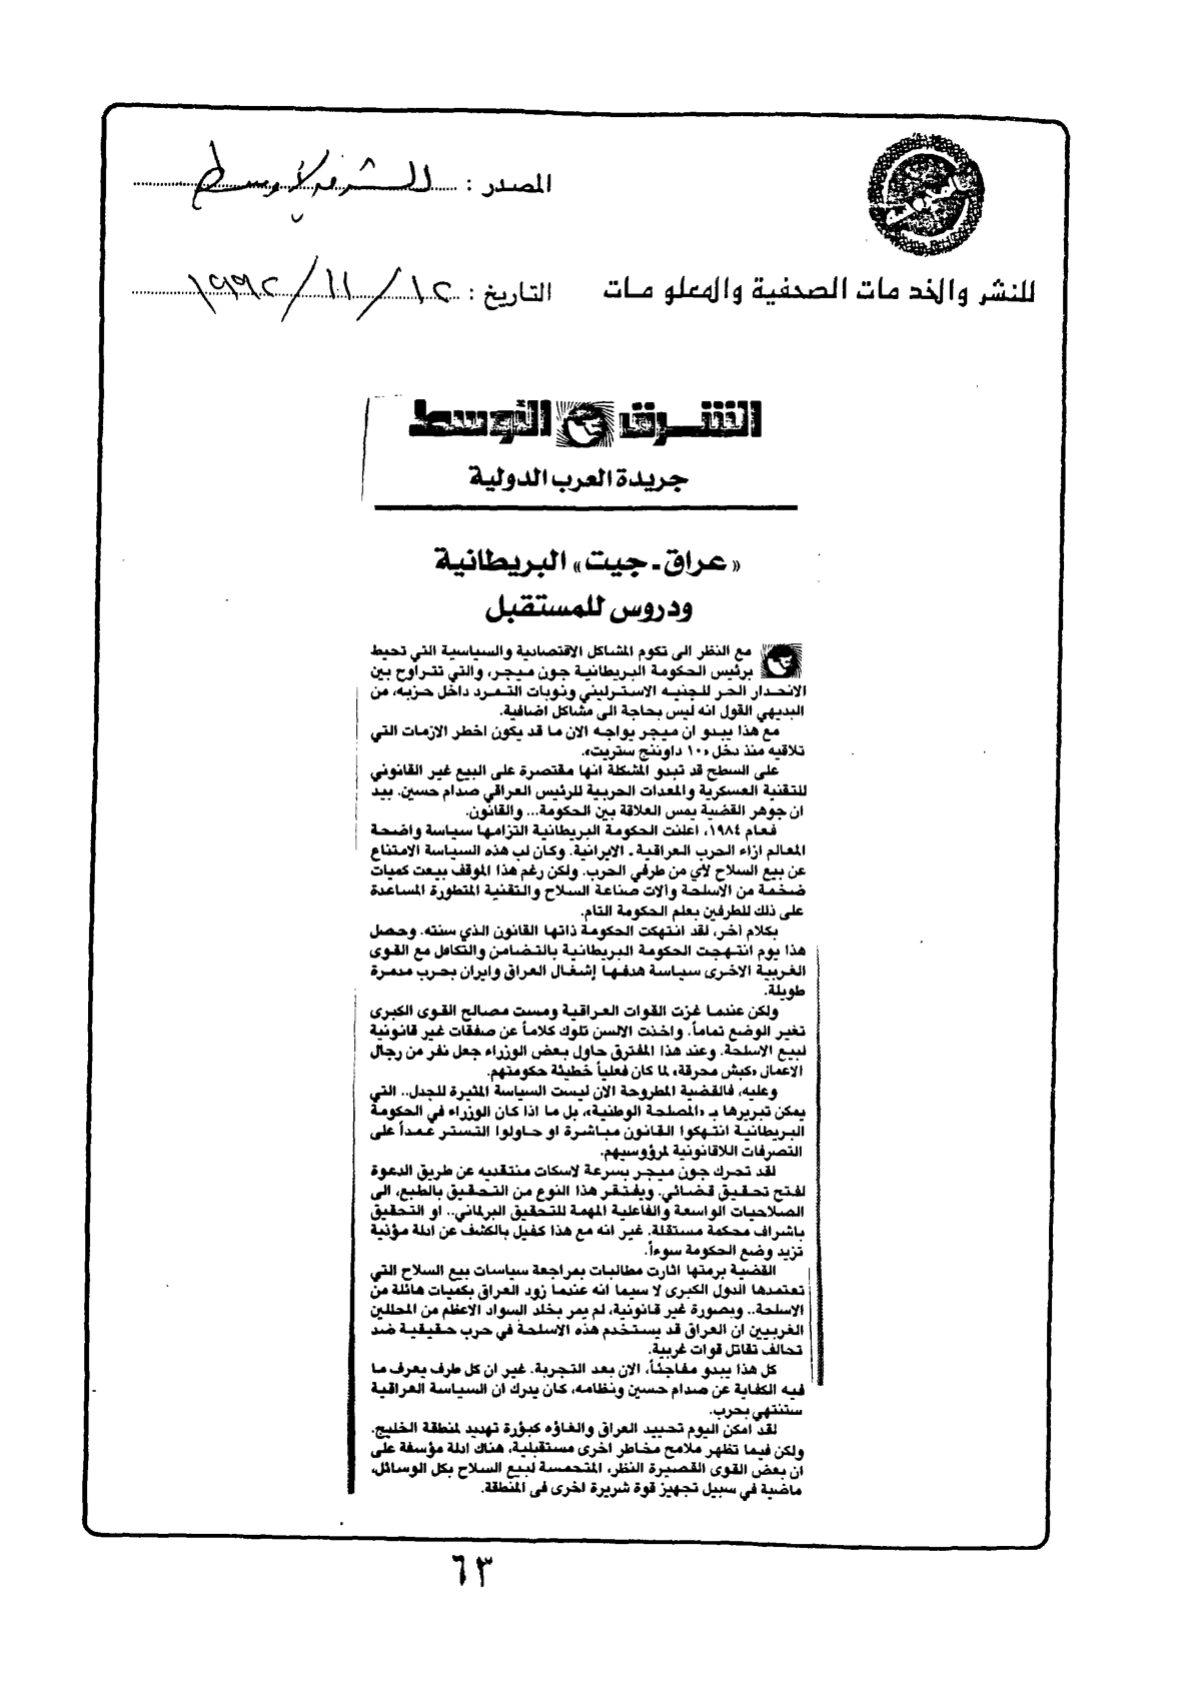 المصدر : الشرق الأوسط
للنشر والخدمات الصحفية والمعلومات
التاريخ : ١٢ / ١١ / ١٩٩٢
الشرق الأوسط
جريدة العرب الدولية
«عراق - جيت» البريطانية
ودروس للمستقبل
مع النظر الى تكوم المشاكل الاقتصادية والسياسية التي تحيط
برئيس الحكومة البريطانية جون ميجر، والتي تتراوح بين
الانحدار الحر للجنيه الاسترليني ونوبات التمرد داخل حزبه، من
البديهي القول انه ليس بحاجة الى مشاكل اضافية.
مع هذا يبدو ان ميجر يواجه الان ما قد يكون اخطر الازمات التي
تلاقيه منذ دخل «١٠ داوننج ستريت».
على السطح قد تبدو المشكلة انها مقتصرة على البيع غير القانوني
للتقنية العسكرية والمعدات الحربية للرئيس العراقي صدام حسين. بيد
ان جوهر القضية يمس العلاقة بين الحكومة... والقانون.
فعام ١٩٨٤، اعلنت الحكومة البريطانية التزامها سياسة واضحة
المعالم ازاء الحرب العراقية - الايرانية. وكان لب هذه السياسة الامتناع
عن بيع السلاح لأي من طرفي الحرب. ولكن رغم هذا الموقف بيعت كميات
ضخمة من الاسلحة وآلات صناعة السلاح والتقنية المتطورة المساعدة
على ذلك للطرفين بعلم الحكومة التام.
بكلام آخر، لقد انتهكت الحكومة ذاتها القانون الذي سنته. وحصل
هذا يوم انتهجت الحكومة البريطانية بالتضامن والتكافل مع القوى
الغربية الاخرى سياسة هدفها إشغال العراق وايران بحرب مدمرة
طويلة.
ولكن عندما غزت القوات العراقية ومست مصالح القوى الكبرى
تغير الوضع تماماً. واخذت الالسن تلوك كلاماً عن صفقات غير قانونية
لبيع الاسلحة. وعند هذا المفترق حاول بعض الوزراء جعل نفر من رجال
الاعمال «كبش محرقة» لما كان فعلياً خطيئة حكومتهم.
وعليه، فالقضية المطروحة الآن ليست السياسة المثيرة للجدل.. التي
يمكن تبريرها بـ «المصلحة الوطنية»، بل ما اذا كان الوزراء في الحكومة
البريطانية انتهكوا القانون مباشرة او حاولوا التستر عمداً على
التصرفات اللاقانونية لمرؤوسيهم.
لقد تحرك جون ميجر بسرعة لاسكات منتقديه عن طريق الدعوة
لفتح تحقيق قضائي. ويفتقر هذا النوع من التحقيق بالطبع، الى
الصلاحيات الواسعة والفاعلية المهمة للتحقيق البرلماني.. او التحقيق
باشراف محكمة مستقلة. غير انه مع هذا كفيل بالكشف عن ادلة مؤنية
تزيد وضع الحكومة سوءاً.
القضية برمتها اثارت مطالبات بمراجعة سياسات بيع السلاح التي
تعتمدها الدول الكبرى لا سيما انه عندما زود العراق بكميات هائلة من
الاسلحة.. وبصورة غير قانونية، لم يمر بخلد السواد الاعظم من المحللين
الغربيين ان العراق قد يستخدم هذه الاسلحة في حرب حقيقية ضد
تحالف تقاتل قوات غربية.
كل هذا يبدو مفاجئاً، الان بعد التجربة. غير ان كل طرف يعرف ما
فيه الكفاية عن صدام حسين ونظامه، كان يدرك ان السياسة العراقية
ستنتهي بحرب.
لقد امكن اليوم تحييد العراق والغاؤه كبؤرة تهديد لمنطقة الخليج.
ولكن فيما تظهر ملامح مخاطر اخرى مستقبلية، هناك ادلة مؤسفة على
ان بعض القوى القصيرة النظر، المتحمسة لبيع السلاح بكل الوسائل،
ماضية في سبيل تجهيز قوة شريرة اخرى في المنطقة.
٦٣